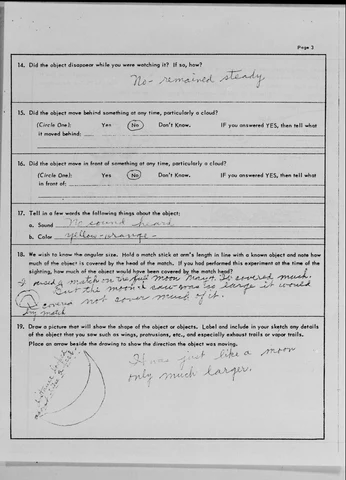 Page 3
14. Did the object disappear while you were watching it? If so, how?
No - remained steady
15. Did the object move behind something at any time, particularly a cloud?
(Circle One): Yes No Don't Know. IF you answered YES, then tell what
it moved behind:
16. Did the object move in front of something at any time, particularly a cloud?
(Circle One): Yes No Don't Know. IF you answered YES, then tell what
in front of:
17. Tell in a few words the following things about the object:
a. Sound No sound heard
b. Color yellow-orange
18. We wish to know the angular size. Hold a match stick at arm's length in line with a known object and note how
much of the object is covered by the head of the match. If you had performed this experiment at the time of the
sighting, how much of the object would have been covered by the match head?
I used a match on the full moon It covered much.
But the moon I saw was so large it would
not cover much of it.
covered
by match
19. Draw a picture that will show the shape of the object or objects. Label and include in your sketch any details
of the object that you saw such as wings, protrusions, etc., and especially exhaust trails or vapor trails.
Place an arrow beside the drawing to show the direction the object was moving.
It was just like a moon
only much larger.